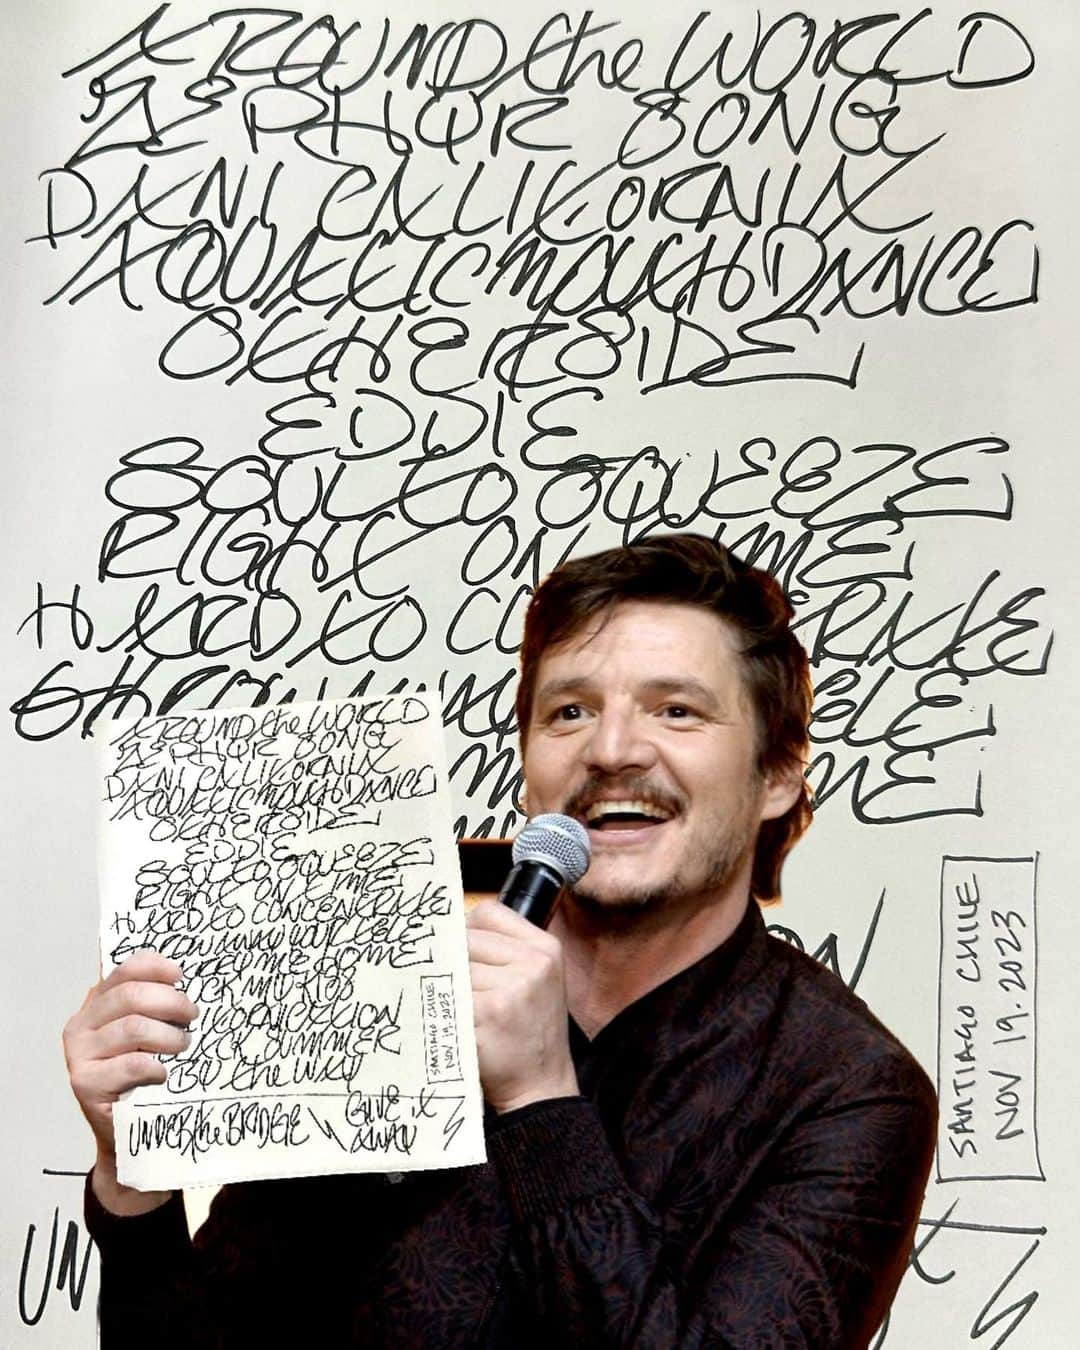 AROUND the WORLD
ZEPHYR SONG
DANI CALIFORNIA
AQUATIC MOUTH DANCE
OTHERSIDE
EDDIE
SOUL TO SQUEEZE
RIGHT ON TIME
HARD TO CO RATE
THROW AWAY ELE
ME
ON
SANTIAGO CHILE
NOV 19. 2023
UN
AROUND the WORLD
ZEPHYR SONG
DANI CALIFORNIA
AQUATIC MOUTH DANCE
OTHERSIDE
EDDIE
SOUL TO SQUEEZE
RIGHT ON TIME
HARD TO CONCENTRATE
THROW AWAY YOUR TELE
ME HOME
UCK MY KISS
LIFORNICATION
LACK SUMMER
BY the WAY
SANTIAGO CHILE
NOV 19. 2023
UNDER the BRIDGE \ GIVE it
AWAY